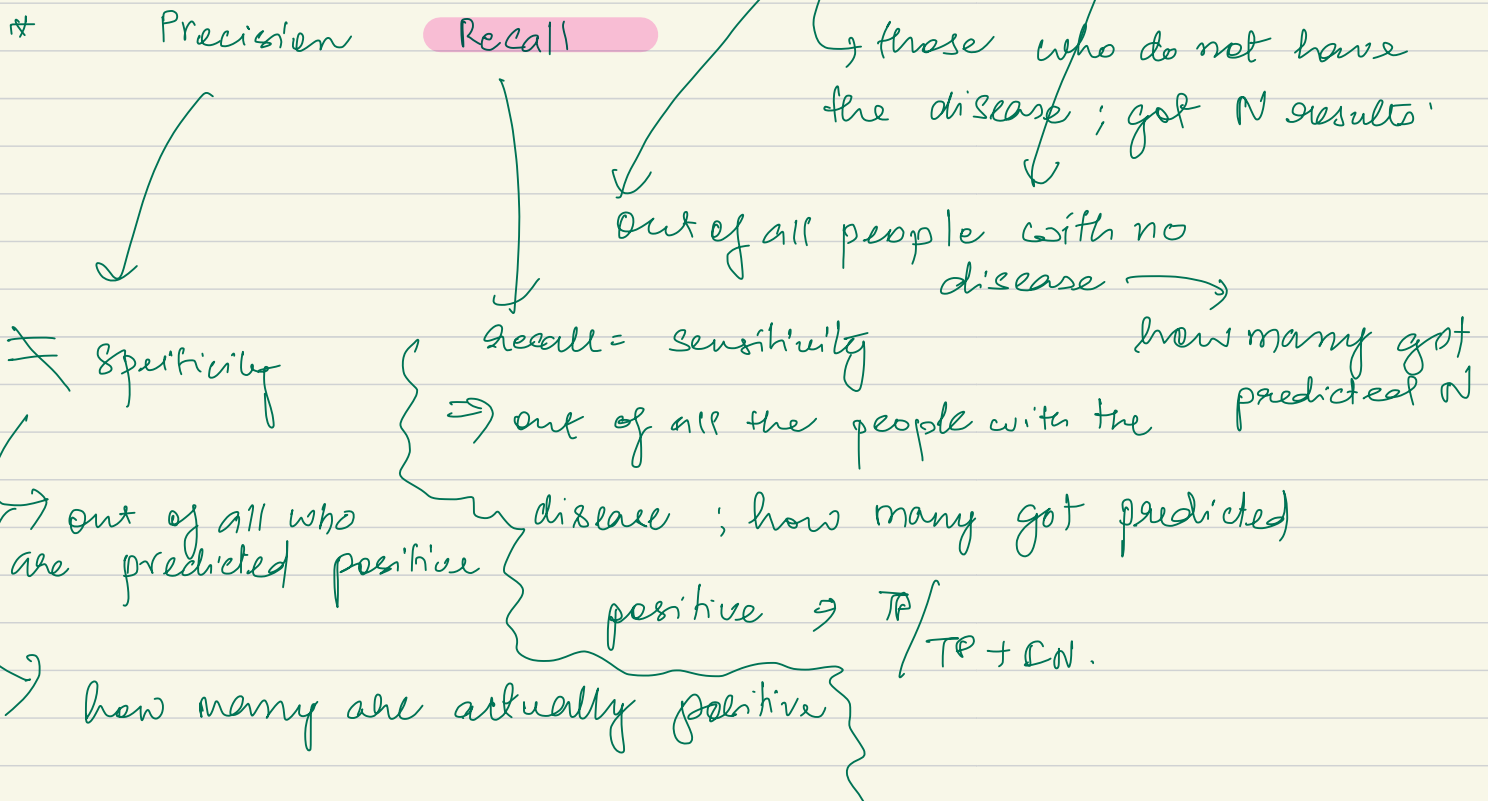 * Precision Recall
↳ those who do not have
the disease ; got N results.
out of all people with no
disease →
how many got
predicted N
≠ Speificity
recall = sensitivity
⇒ out of all the people with the
disease ; how many got predicted
positive ⇒ TP/
TP + CN.
→ out of all who
are predicted positive
→ how many are actually positive